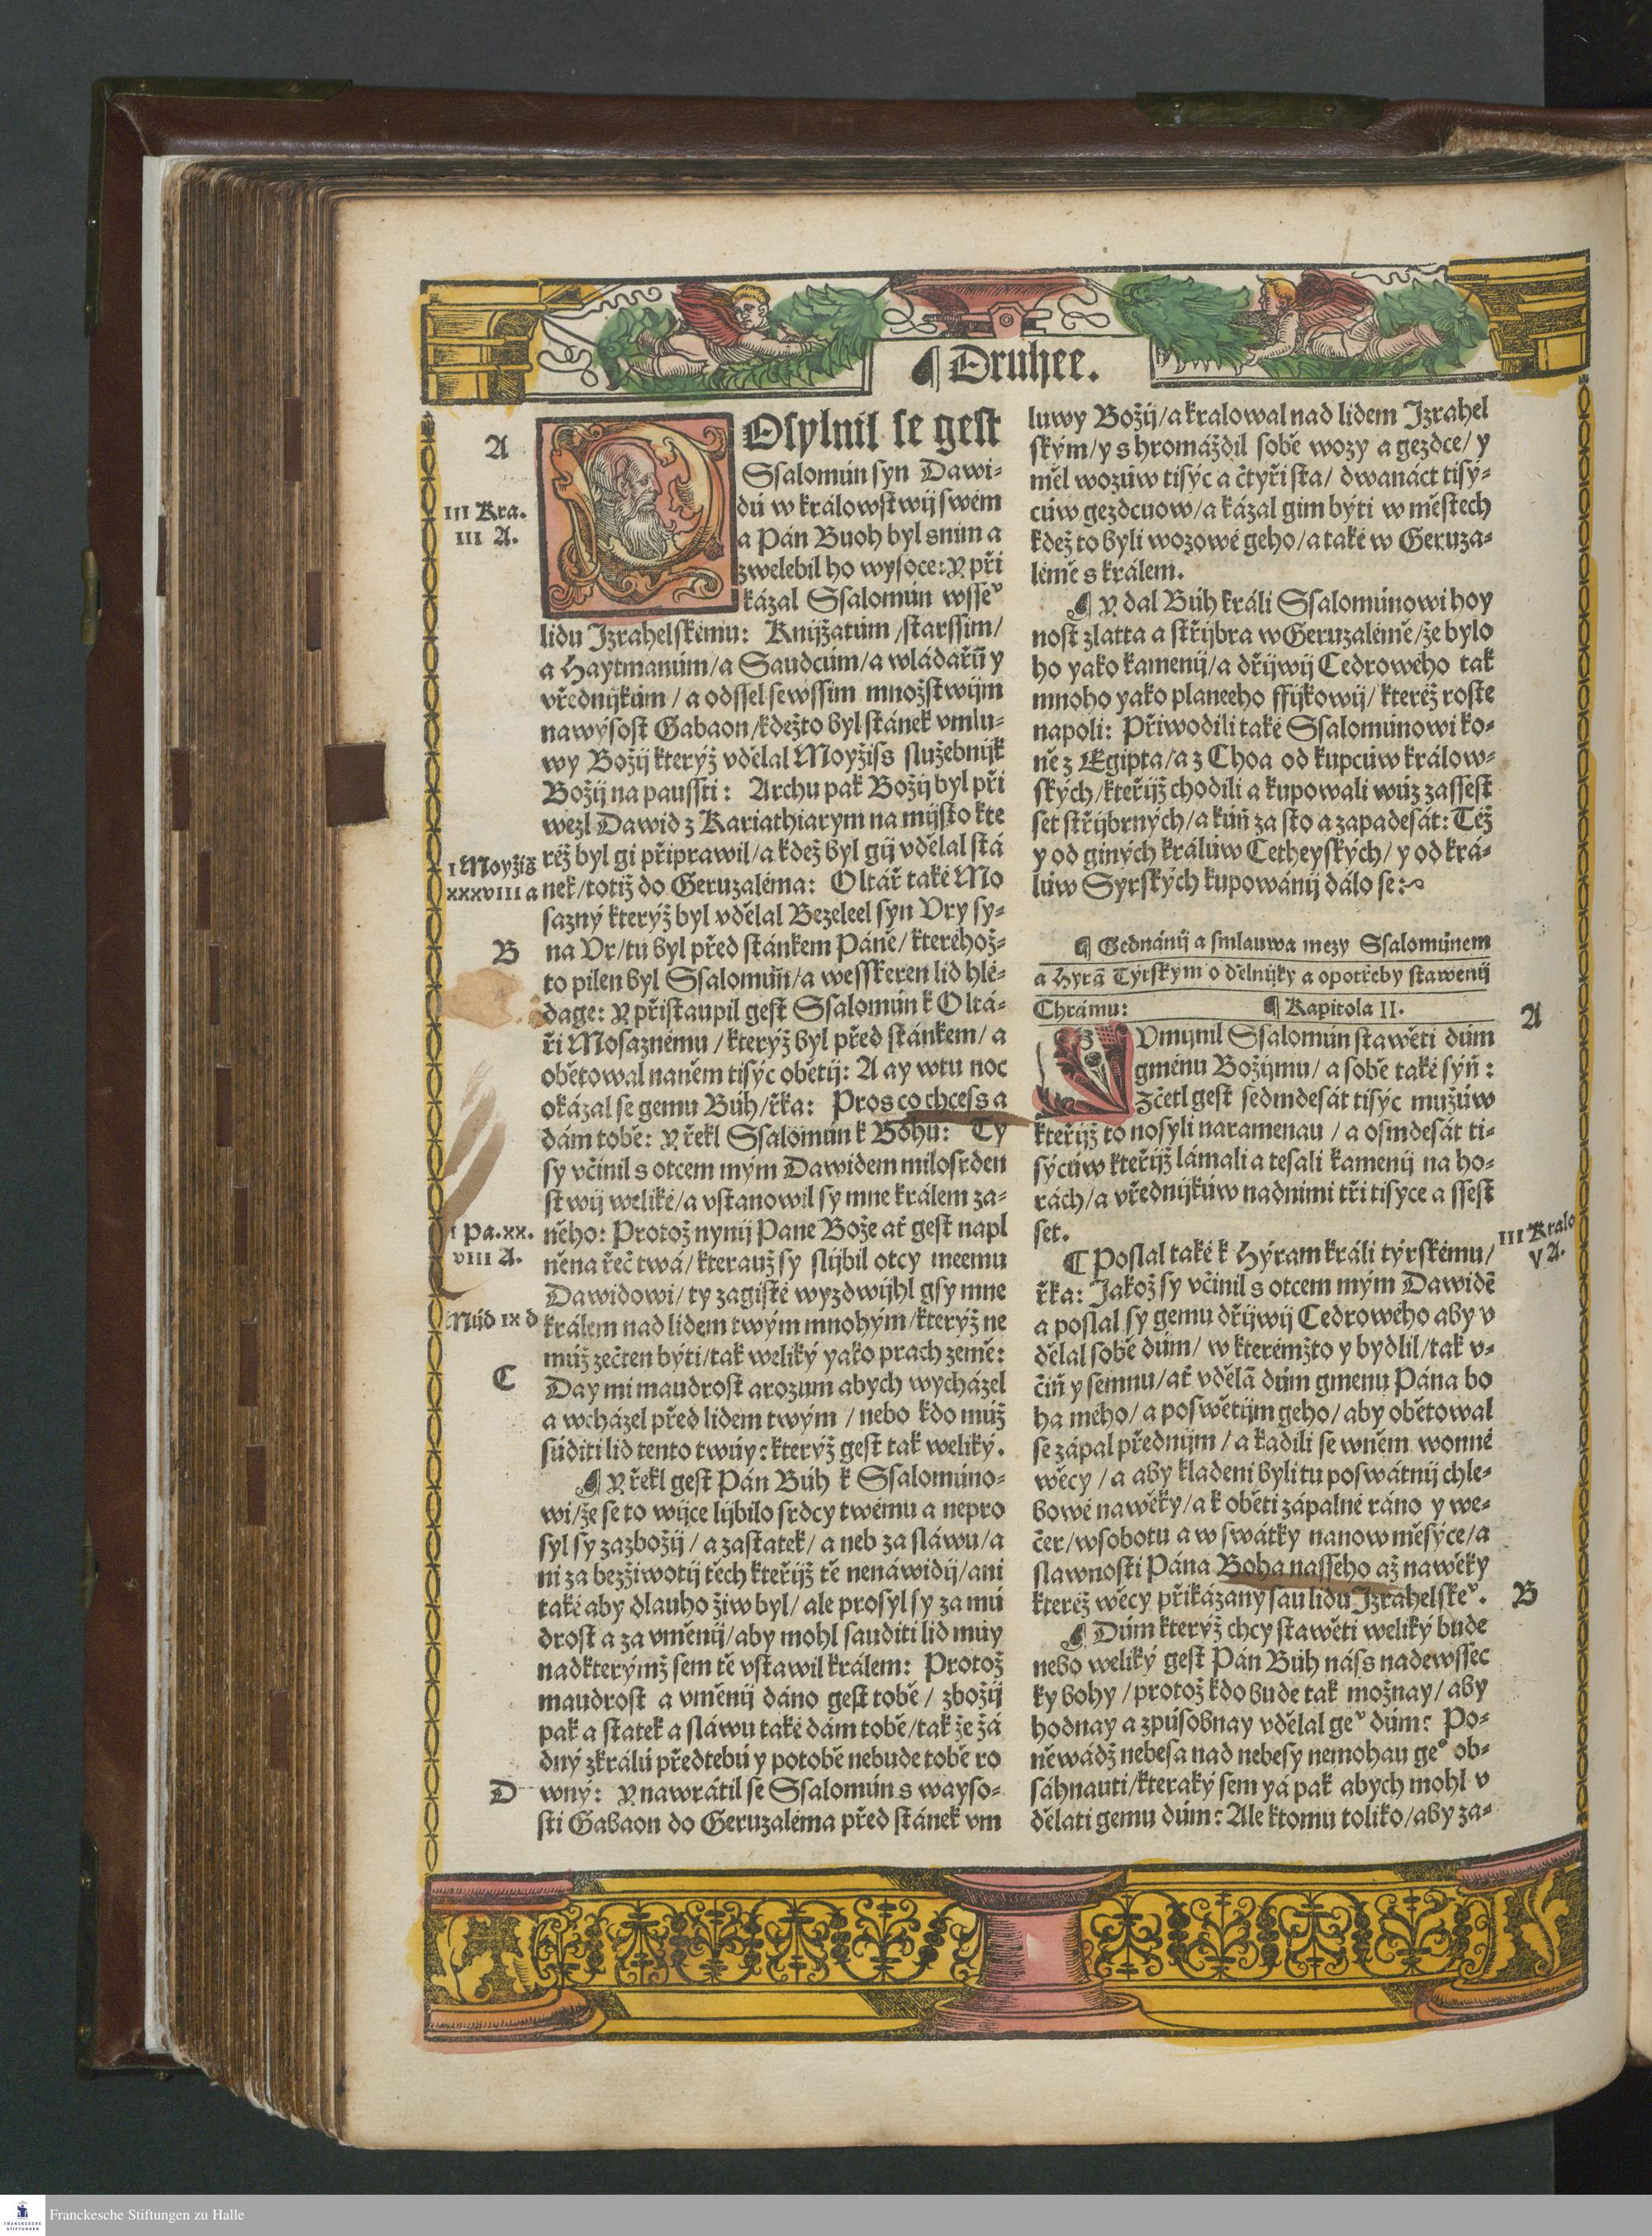 ¶ Druhee.
A
III Kra.
III A.
POsylnil se gest
Ssalomún syn Dawi-
dú w králowstwij swém
a Pán Buoh byl sním a
zwelebil ho wysoce: Y při
kázal Ssalomún wsseͮ
lidu Izrahelskému: Knijžatúm /starssim/
a Haytmanúm/a Saudcúm/a wládařũ y
vřednijkúm / a odssel sewssim množstwijm
nawýsost Gabaon/kdežto byl stánek vmlu-
wy Božij kterýž vdělal Moyžiss služebnijk
Božij na paussti: Archu pak Božij byl při
wezl Dawid z Kariathiarym na mijsto kte
I Moyžiš
réž byl gi připrawil/a kdež byl gij vdělal stá
XXXVIII a
nek/totiž do Geruzaléma: Oltář také Mo
sazný kterýž byl vdělal Bezeleel syn Vry sy-
B
na Vr/tu byl před stánkem Páně/ kteréhož-
to pilen byl Ssalomún/a wesskeren lid hlé-
dage: Y přistaupil gest Ssalomún k Oltá-
ři Mosaznému /kterýž byl před stánkem/ a
obětowal naněm tisýc obětij: A ay wtu noc
okázal se gemu Búh/řka: Pros co chcess a
dám tobě: Y řekl Ssalomún k Bohu: Ty
sy včinil s otcem mým Dawidem milosrden
stwij weliké/a vstanowil sy mne králem za-
I Pa.XX.
něho: Protož nynij Pane Bože ať gest napl
VIII A.
něna řeč twá/kterauž sy slijbil otcy meemu
Dawidowi/ ty zagisté wyzdwijhl gsy mne
Múd IX d
králem nad lidem twým mnohým/kterýž ne
múž zečten býti/tak weliký yako prach země:
C
Day mi maudrost arozum abych wycházel
a wcházel před lidem twým / nebo kdo múž
súditi lid tento twúy: kterýž gest tak weliký.
¶ Y řekl gest Pán Búh k Ssalomúno-
wi/že se to wijce lijbilo srdcy twému a nepro
syl sy zazbožij / a zastatek/ a neb za sláwu/a
ni za bezžiwotij těch kteřijž tě nenáwidij/ani
také aby dlauho žiw byl/ ale prosyl sy za mú
drost a za vměnij/aby mohl sauditi lid múy
nadkterýmž sem tě vstawil králem: Protož
maudrost a vměnij dáno gest tobě / zbožij
pak a statek a sláwu také dám tobě/tak že žá
dný zkrálú předtebú y potobě nebude tobě ro
D
wný: Y nawrátil se Ssalomún s wayso-
sti Gabaon do Geruzaléma před stánek vm
luwy Božij/a kralowal nad lidem Izrahel
ským/y shromáždil sobě wozy a gezdce/ y
měl wozúw tisýc a čtyři sta/ dwanáct tisý-
cúw gezdcuow/a kázal gim býti w městech
kdež to byli wozowé geho/a také w Geruza-
lémě s králem.
¶ Y dal Búh králi Ssalomúnowi hoy
nost zlatta a střijbra w Geruzalémě/že bylo
ho yako kamenij/a dřijwij Cedrowého tak
mnoho yako planeeho ffijkowij/ kteréž roste
napoli: Přiwodili také Ssalomúnowi ko-
ně z Egipta/a z Choa od kupcúw králow-
ských/kteřijž chodili a kupowali wúz zassest
set střijbrných/a kúň za sto a zapadesát: Též
y od giných králúw Cetheyských/ y od krá-
lúw Syrských kupowánij dálo se:
¶ Gednánij a smlauwa mezy Ssalomúnem
a Hyrã Týrským o dělnijky a opotřeby stawenij
Chrámu: ¶ Kapitola II.
A
VMijnil Ssalomún stawěti dúm
gménu Božijmu/ a sobě také sýň:
Zčetl gest sedmdesát tisýc mužúw
kteřijž to nosyli naramenau / a osmdesát ti-
sýcúw kteřijž lámali a tesali kamenij na ho-
rách/a vřednijkúw nadnimi tři tisyce a ssest
set.
III Kralo
V A.
¶ Poslal také k Hýram králi týrskému/
řka: Jakož sy včinil s otcem mým Dawidē
a poslal sy gemu dřijwij Cedrowého aby v
dělal sobě dúm/ w kterémžto y bydlil/tak v-
čiň y semnu/ať vdělã dúm gmenu Pána bo
ha mého/ a poswětijm geho/ aby obětowal
se zápal přednijm / a kadili se wněm wonné
wěcy / a aby kladeni byli tu poswátnij chle-
bowé nawěky/a k oběti zápalné ráno y we-
čer/wsobotu a w swátky nanow měsýce/a
slawnosti Pána Boha nasseho až nawěky
kteréž wěcy přikázany sau lidu Izrahelskeͮ.
B
¶ Dúm kterýž chcy stawěti weliký bude
nebo weliký gest Pán Búh náss nadewssec
ky bohy /protož kdo bude tak možnay/ aby
hodnay a zpúsobnay vdělal geͮ dúm: Po-
něwádž nebesa nad nebesy nemohau geͦ ob-
sáhnauti/kteraký sem yá pak abych mohl v
dělati gemu dúm: Ale ktomu toliko/aby za-
Franckesche Stiftungen zu Halle